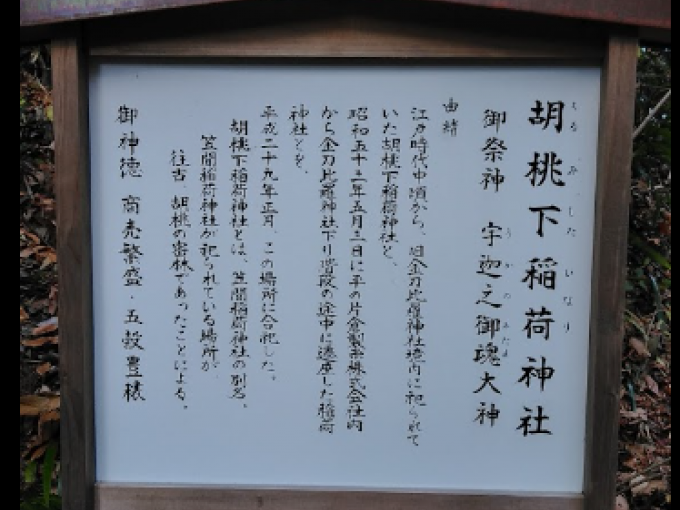 胡桃下稲荷神社
くるみしたいなり
御祭神 宇迦之御魂大神
うかのみたま
由緒
江戸時代中頃から、旧金刀比羅神社境内に祀られて
いた胡桃下稲荷神社と、
昭和五十二年五月二日に平の片倉製糸株式会社内
から金刀比羅神社下り階段の途中に遷座した稲荷
神社とを、
平成二十九年正月、この場所に合祀した。
胡桃下稲荷神社とは、笠間稲荷神社の別名。
笠間稲荷神社が祀られている場所が、
往古、胡桃の密林であったことによる。
御神徳 商売繁盛・五穀豊穣